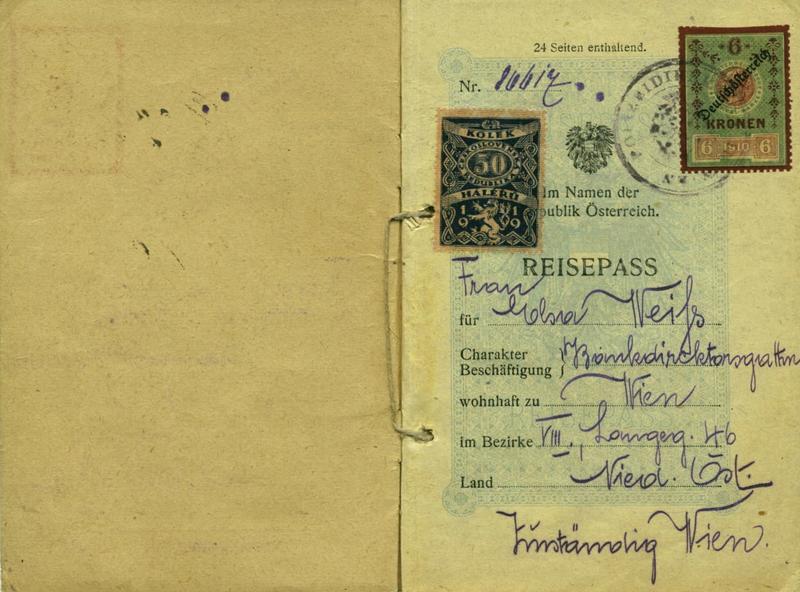 24 Seiten enthaltend.
Nr.
6 KRONEN
Deutschösterreich
6 1910 6
KOLEK
50
HALÉŘŮ
1919
Im Namen der
publik Österreich.
REISEPASS
Frau
für Elsa Weiß
Charakter
Beschäftigung } Bankdirektorsgattin
wohnhaft zu Wien
im Bezirke VIII., Langeg. 46
Land Nied. Öst.
Zuständig Wien.